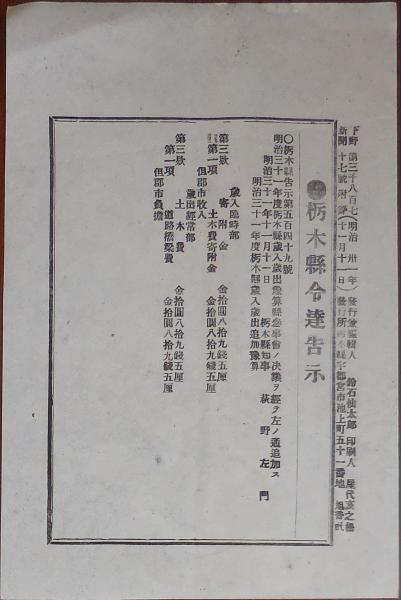 下野新聞 第三千八百七十七號附錄 (明治卅一年十一月十一日) 發行兼編輯人 鈴石柚太郎 印刷人 屋代亥之
發行所 栃木縣宇都宮市池上町五十一番地
栃木縣令達告示
〇栃木縣告示第五百四十九號
明治三十一年度栃木縣歲入歲出豫算縣參事會ノ決議ヲ經テ左ノ通追加ス
明治三十一年十一月十一日 栃木縣知事 萩野左門
明治三十一年度栃木縣歲入歲出追加豫算
歲入臨時部
第三欵 寄附金 金拾圓八拾九錢五厘
第一項 土木費寄附金 金拾圓八拾九錢五厘
但郡市收入
歲出經常部
第三欵 土木費 金拾圓八拾九錢五厘
第一項 道路橋梁費 金拾圓八拾九錢五厘
但郡市負擔